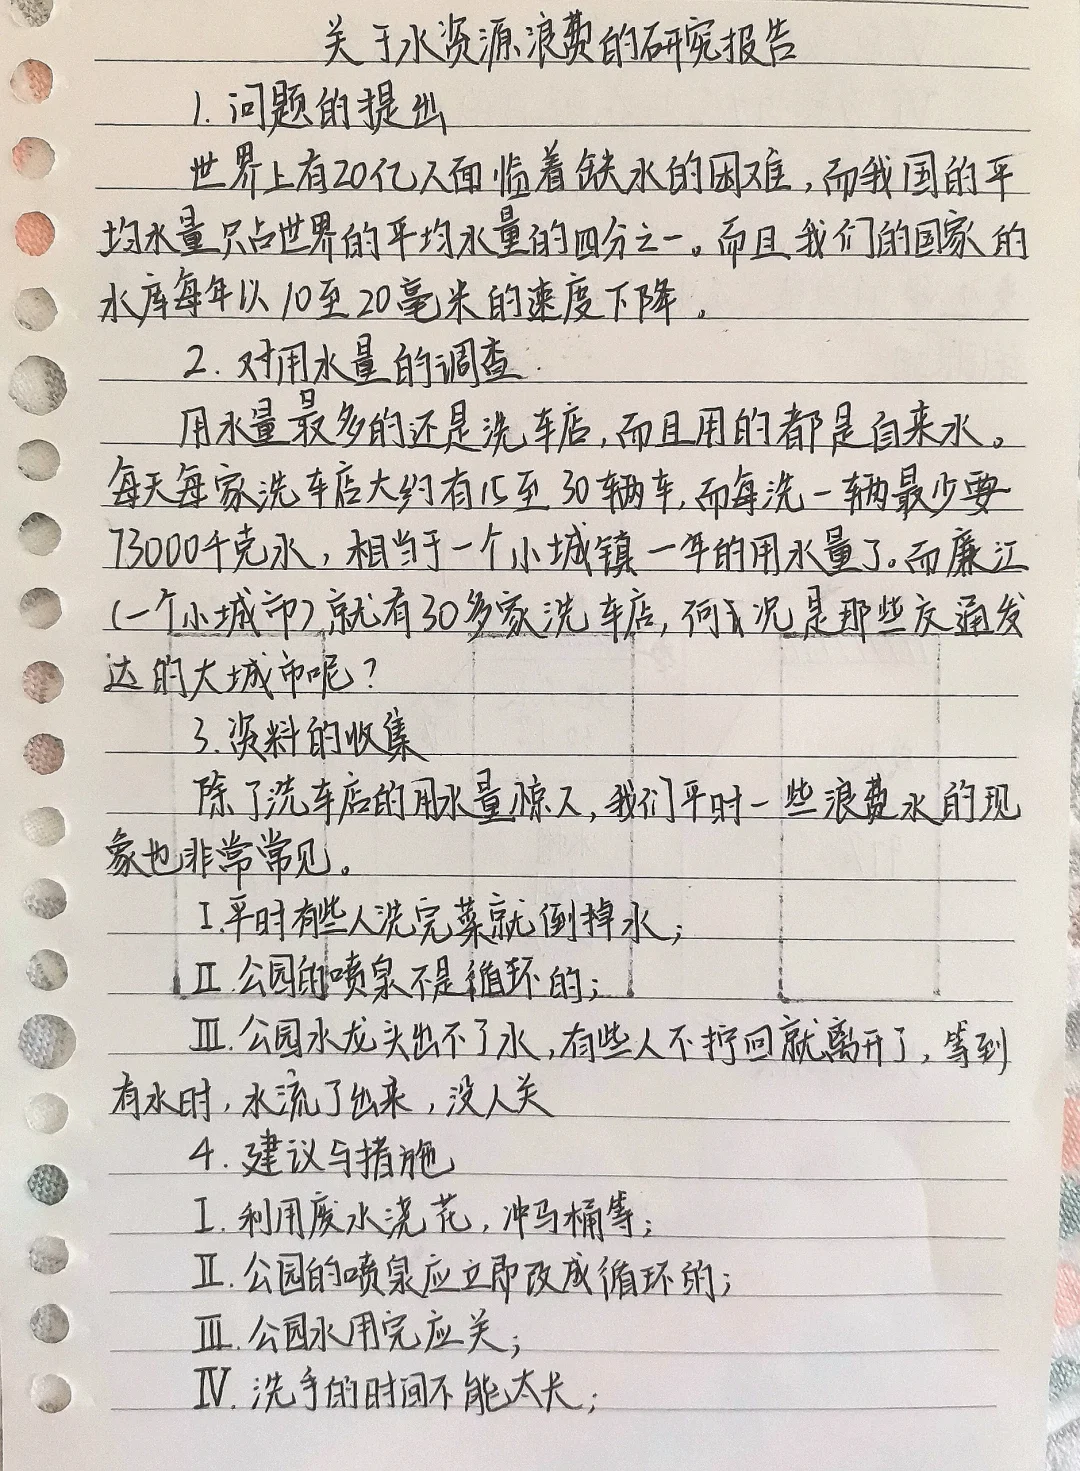 关于水资源浪费的研究报告
1.问题的提出
世界上有20亿人面临着缺水的困难,而我国的平
均水量只占世界的平均水量的四分之一。而且我们的国家的
水库每年以10至20毫米的速度下降。
2.对用水量的调查.
用水量最多的还是洗车店,而且用的都是自来水。
每天每家洗车店大约有15至30辆车,而每洗一辆最少要
73000千克水,相当于一个小城镇一年的用水量了。而廉江
(一个小城市)就有30多家洗车店,何况是那些交通发
达的大城市呢?
3.资料的收集
除了洗车店的用水量惊人,我们平时一些浪费水的现
象也非常常见。
I.平时有些人洗完菜就倒掉水;
II.公园的喷泉不是循环的;
III.公园水龙头出不了水,有些人不拧回就离开了,等到
有水时,水流了出来,没人关
4.建议与措施
I.利用废水浇花,冲马桶等;
II.公园的喷泉应立即改成循环的;
III.公园水用完应关;
IV.洗手的时间不能太长;